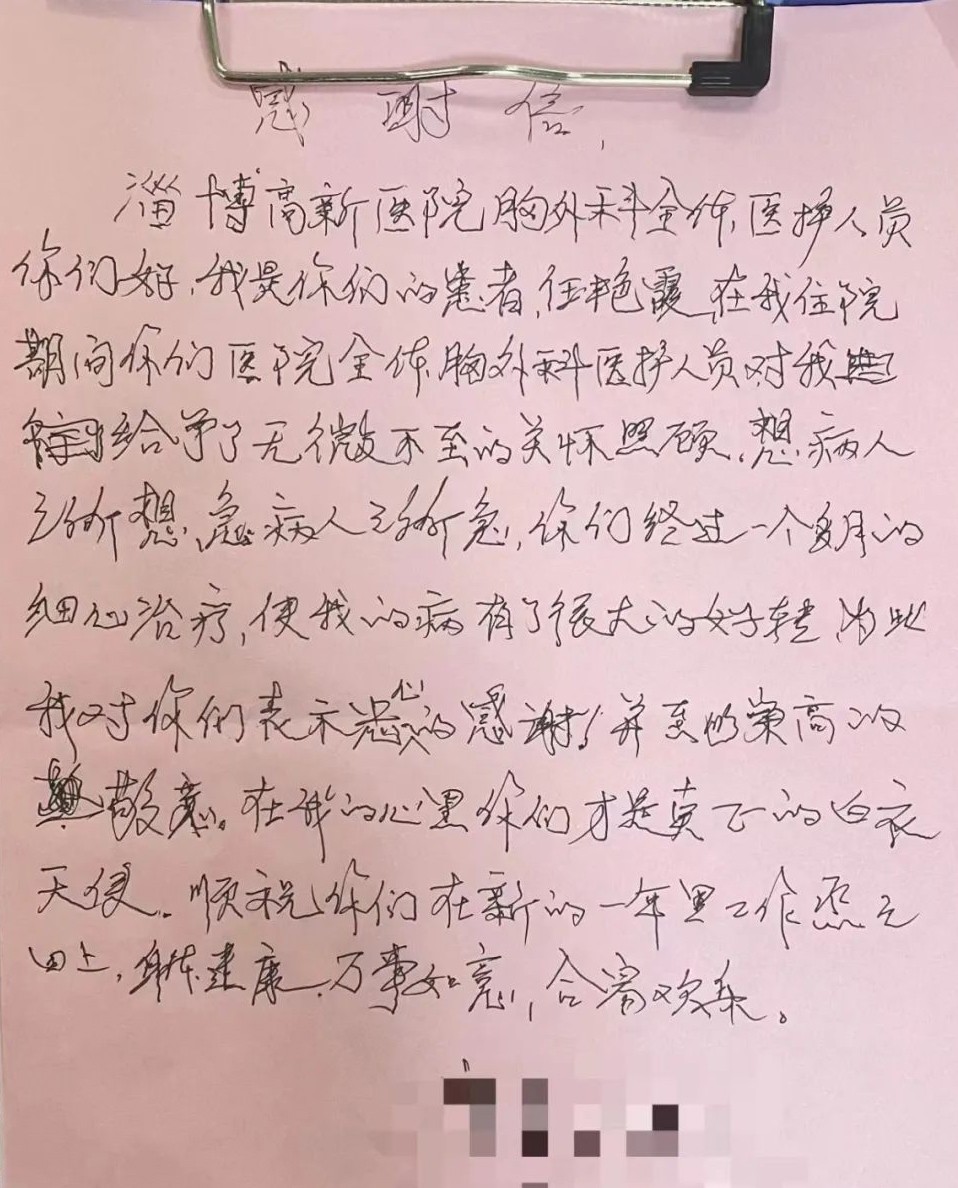 感谢信
淄博高新医院胸外科全体医护人员
你们好,我是你们的患者,任艳霞,在我住院
期间你们医院全体胸外科医护人员对我
给予了无微不至的关怀照顾,想病人
之所想,急病人之所急,你们经过一个多月的
细心治疗,使我的病有了很大的好转,为此
我对你们表示忠心的感谢!并至以崇高的
敬意。在我的心里你们才是真正的白衣
天使。顺祝你们在新的一年里工作蒸之
日上,身体建康,万事如意,合家欢乐。